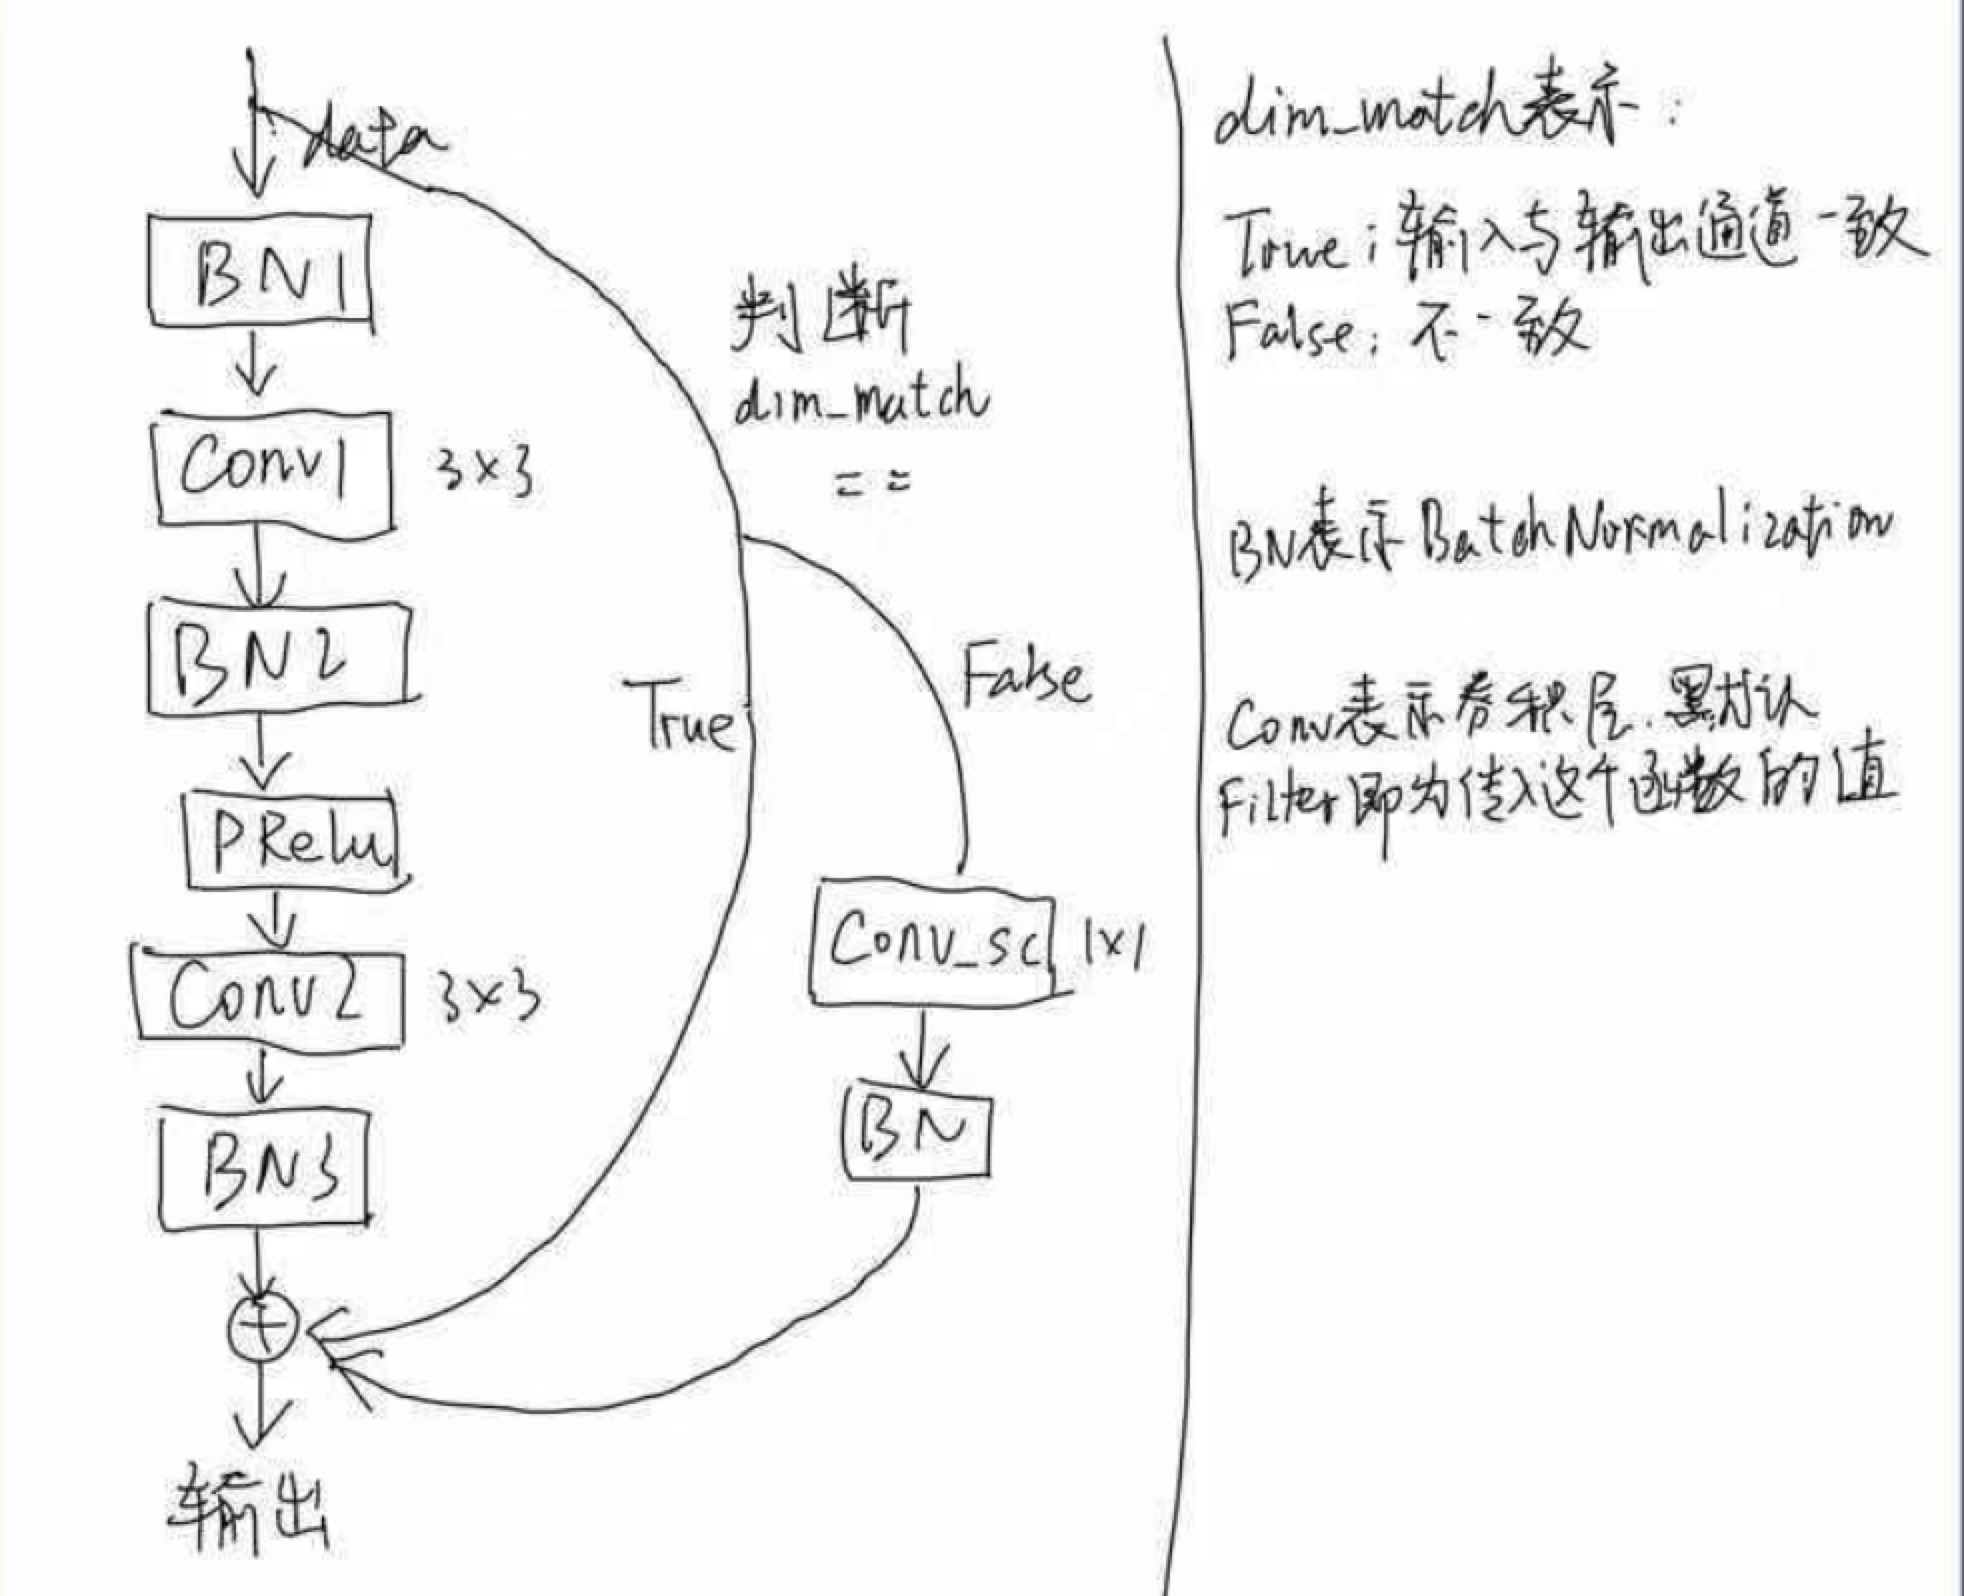 data
BN1
Conv1 3×3
BN2
PRelu
Conv2 3×3
BN3
+
输出
判断
dim_match
==
True
False
Conv_sc 1×1
BN
dim_match表示:
True:输入与输出通道一致
False:不一致
BN表示BatchNormalization
Conv表示卷积层.默认
Filter即为传入这个函数的值